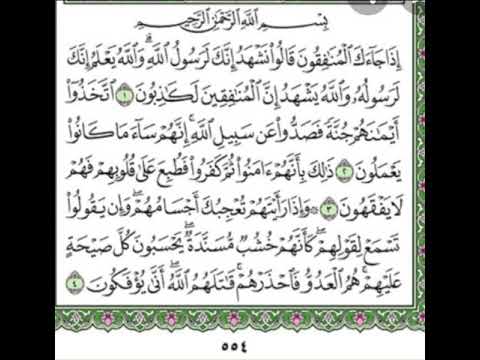 بِسْمِ ٱللَّهِ ٱلرَّحْمَٰنِ ٱلرَّحِيمِ
إِذَا جَآءَكَ ٱلْمُنَٰفِقُونَ قَالُوا۟ نَشْهَدُ إِنَّكَ لَرَسُولُ ٱللَّهِ ۗ وَٱللَّهُ يَعْلَمُ إِنَّكَ
لَرَسُولُهُۥ وَٱللَّهُ يَشْهَدُ إِنَّ ٱلْمُنَٰفِقِينَ لَكَٰذِبُونَ ١ ٱتَّخَذُوٓا۟
أَيْمَٰنَهُمْ جُنَّةً فَصَدُّوا۟ عَن سَبِيلِ ٱللَّهِ ۚ إِنَّهُمْ سَآءَ مَا كَانُوا۟
يَعْمَلُونَ ٢ ذَٰلِكَ بِأَنَّهُمْ ءَامَنُوا۟ ثُمَّ كَفَرُوا۟ فَطُبِعَ عَلَىٰ قُلُوبِهِمْ فَهُمْ
لَا يَفْقَهُونَ ٣ ۞ وَإِذَا رَأَيْتَهُمْ تُعْجِبُكَ أَجْسَامُهُمْ ۖ وَإِن يَقُولُوا۟
تَسْمَعْ لِقَوْلِهِمْ ۖ كَأَنَّهُمْ خُشُبٌ مُّسَنَّدَةٌ ۖ يَحْسَبُونَ كُلَّ صَيْحَةٍ
عَلَيْهِمْ ۚ هُمُ ٱلْعَدُوُّ فَٱحْذَرْهُمْ ۚ قَٰتَلَهُمُ ٱللَّهُ ۖ أَنَّىٰ يُؤْفَكُونَ ٤
٥٥٤